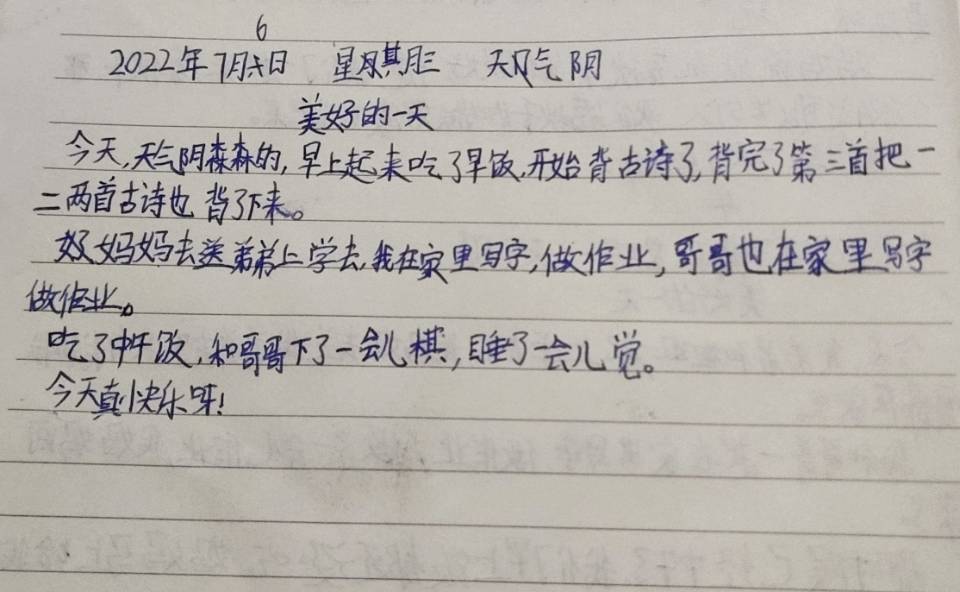 6
2022年7月六日 星期三 天气阴
美好的一天
今天,天气阴森森的,早上起来吃了早饭,开始背古诗了,背完了第三首把一
二两首古诗也背了下来。
妈妈去送弟弟上学去,我在家里写字,做作业,哥哥也在家里写字
做作业。
吃了中午饭,和哥哥下了一会儿棋,睡了一会儿觉。
今天真快乐呀!